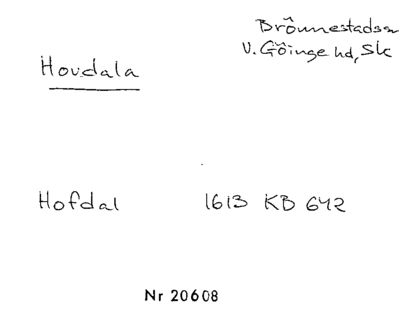 Brönnestads sn
V. Göinge hd, Sk
Hovdala
Hofdal 1613 KB 642
Nr 20608